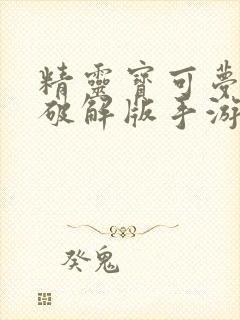 精靈寶可夢
破解版手游
癸鬼